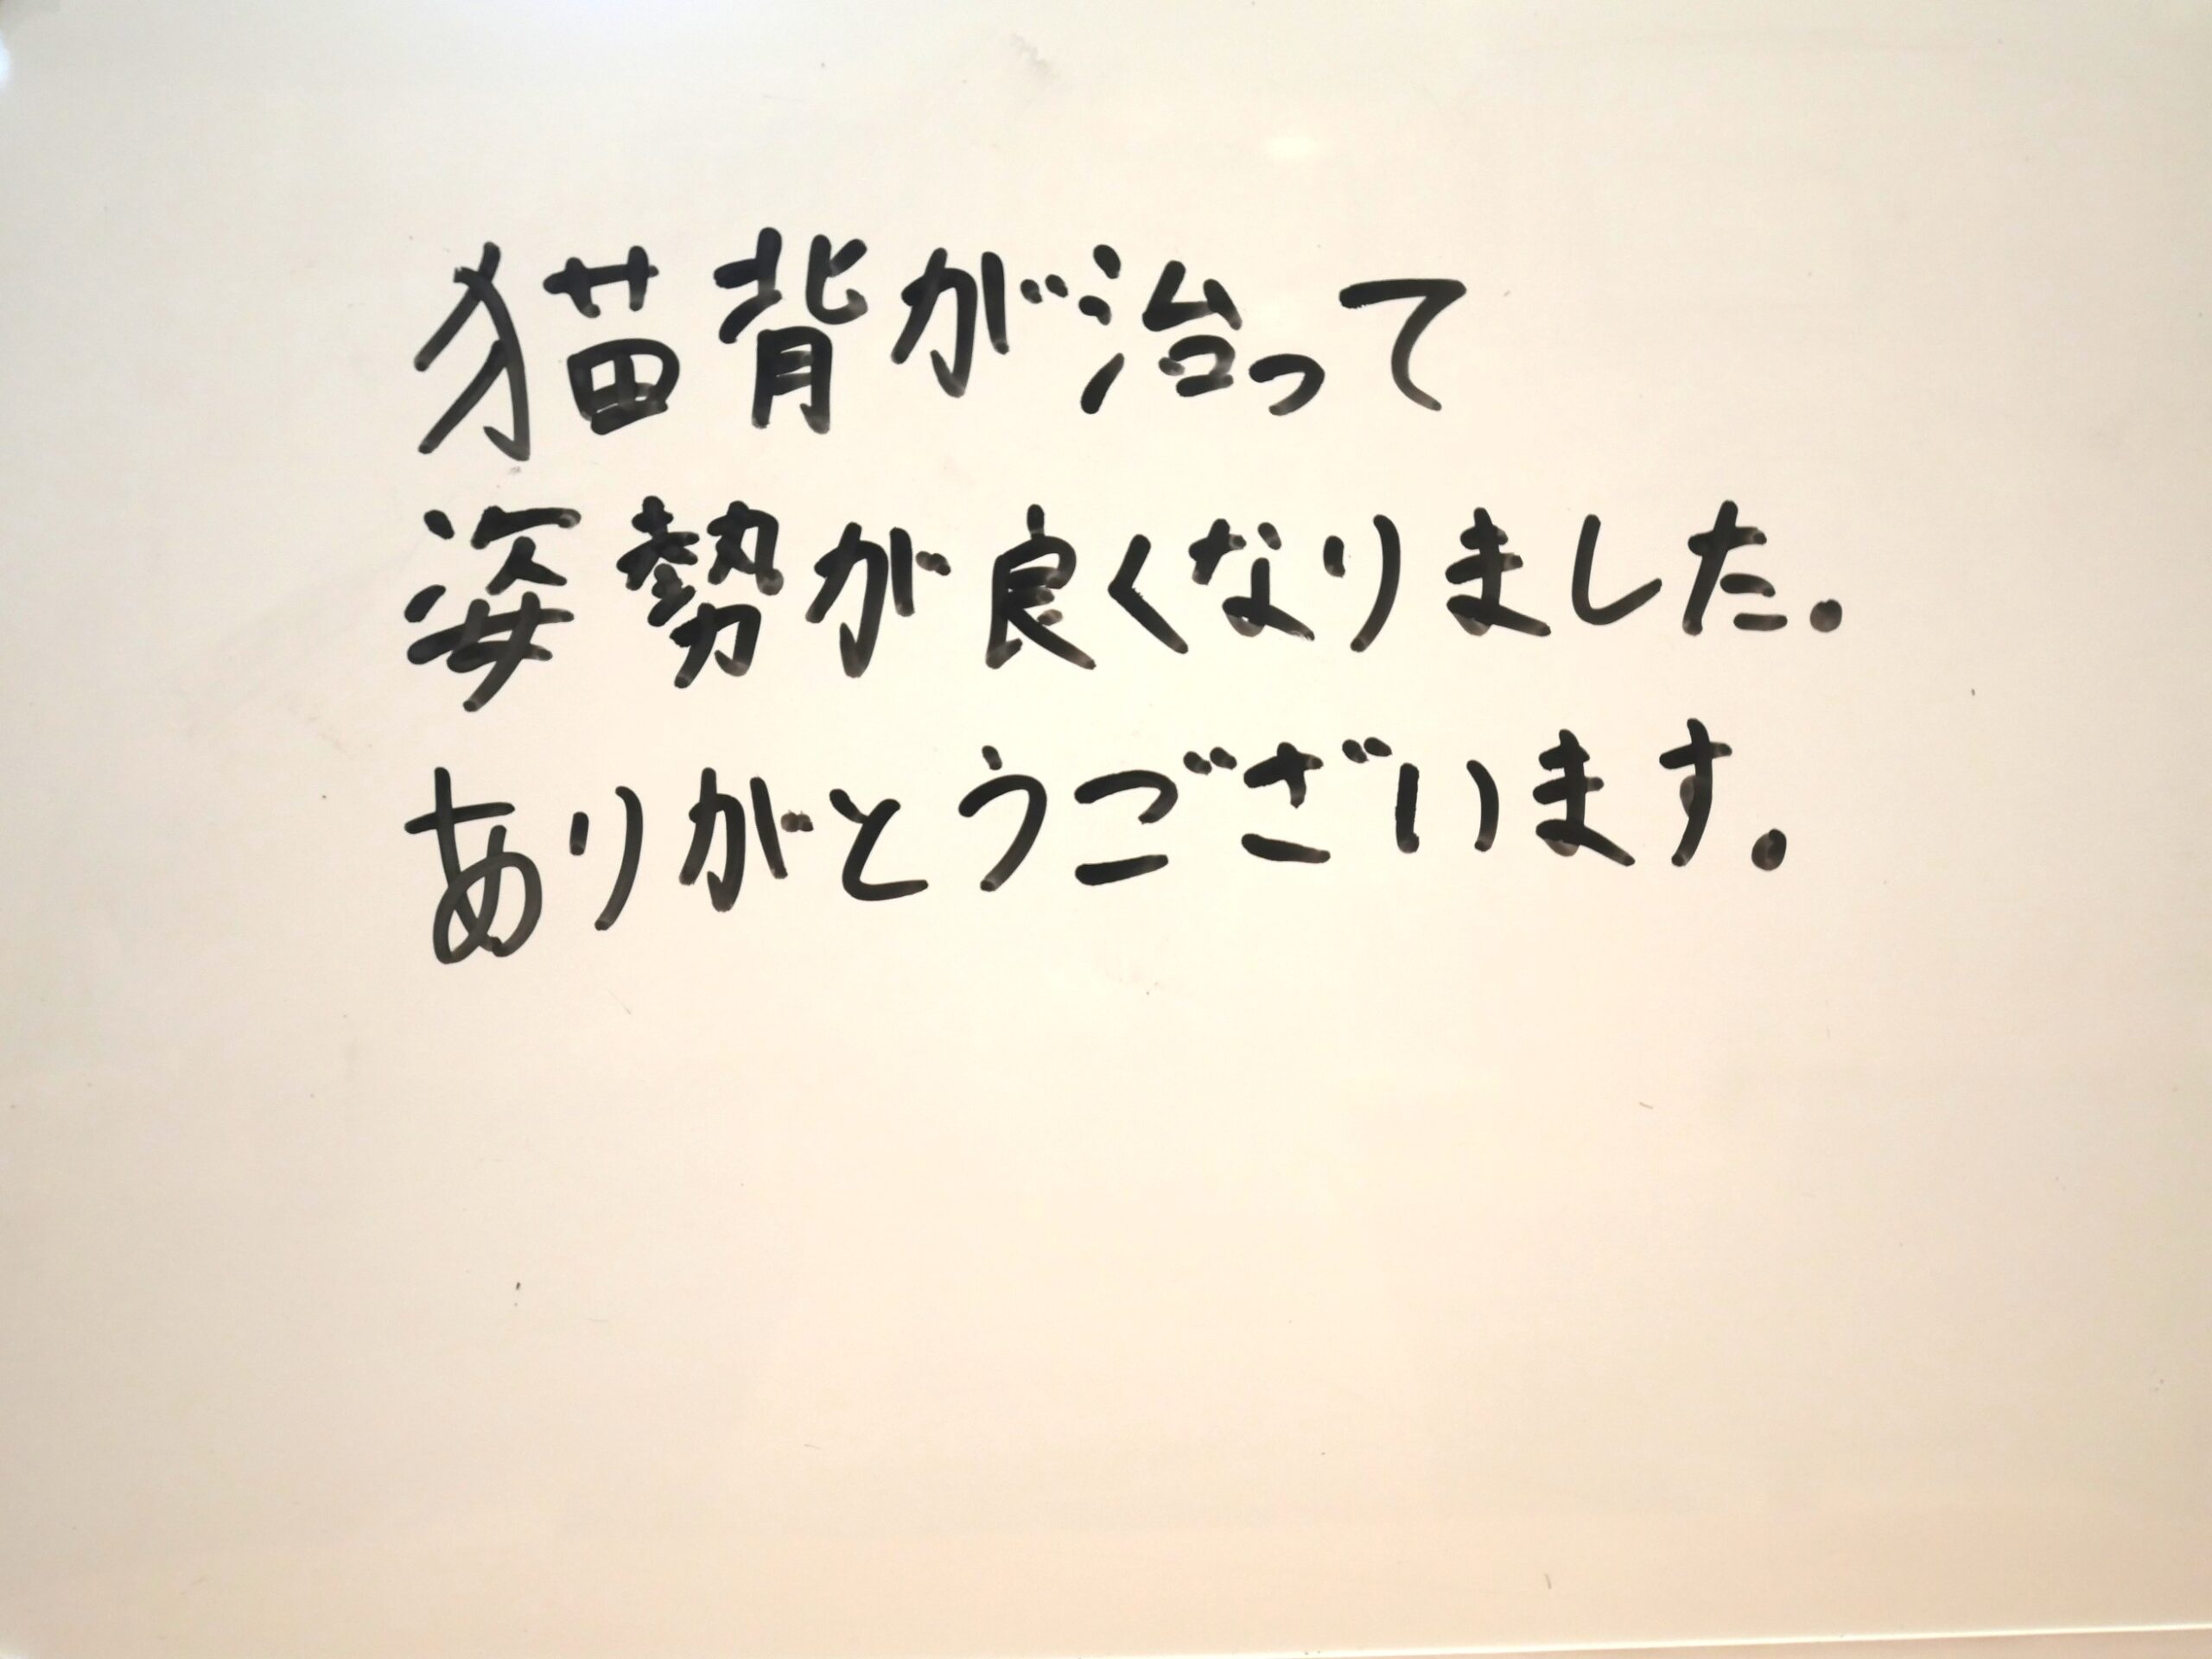 猫背が治って
姿勢が良くなりました。
ありがとうございます。